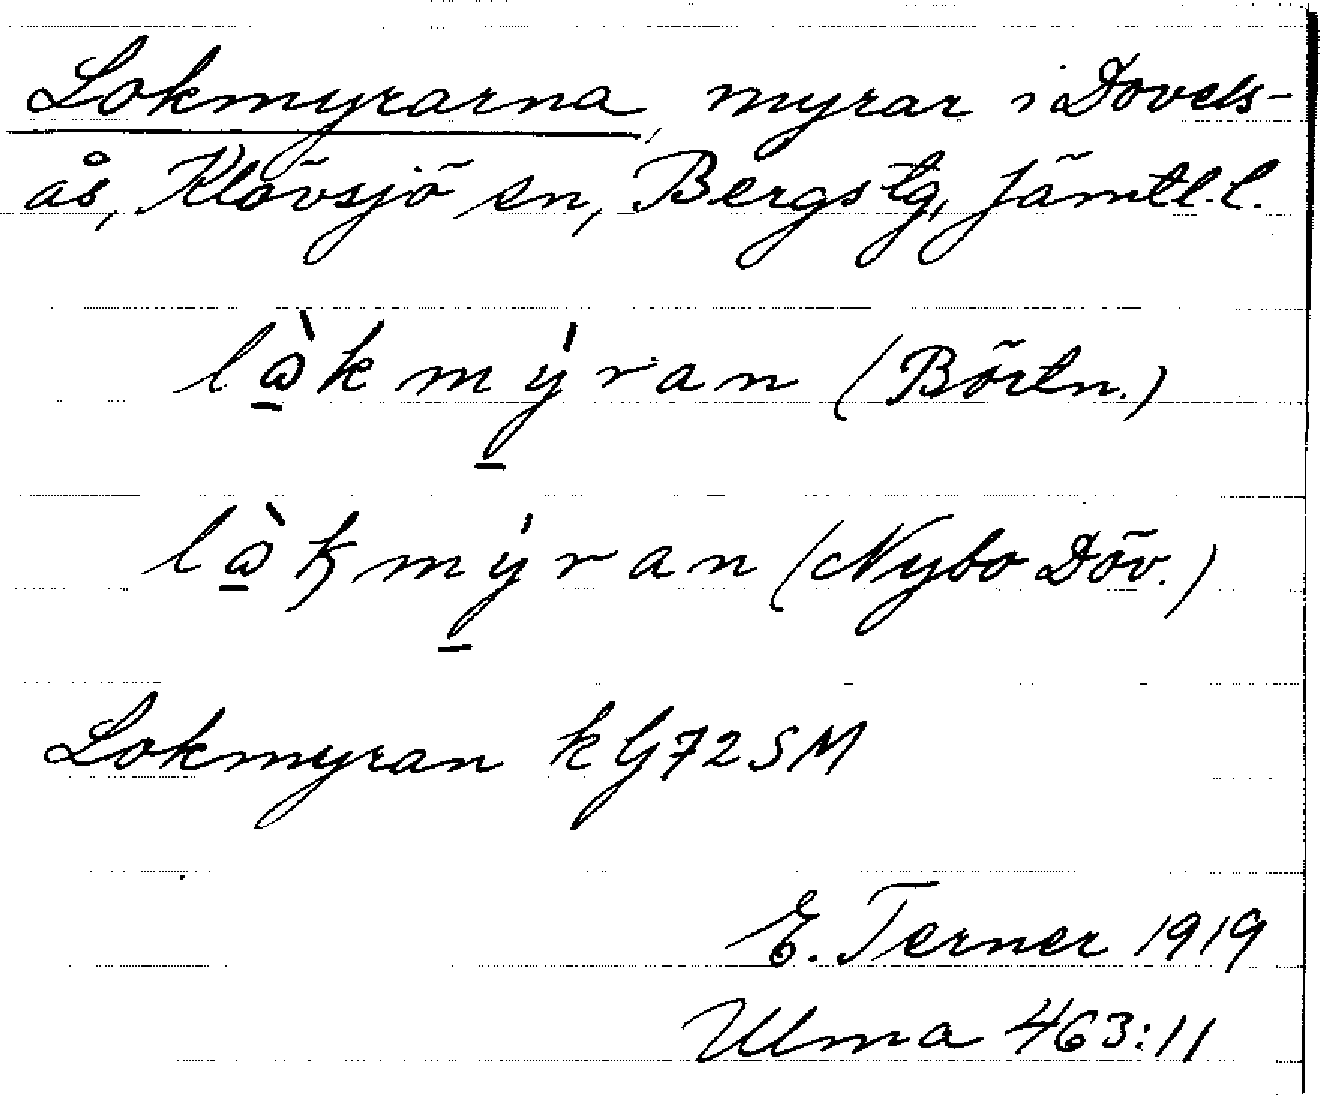 Lokmyrarna, myrar i Dovels-
ås, Klövsjö sn, Bergs tg, Jämtl.l.
là̱kmý̱ran (Börtn.)
là̱kmý̱ran (Nybo Döv.)
Lokmyran kG72SM
E. Terner 1919
Ulma 463:11